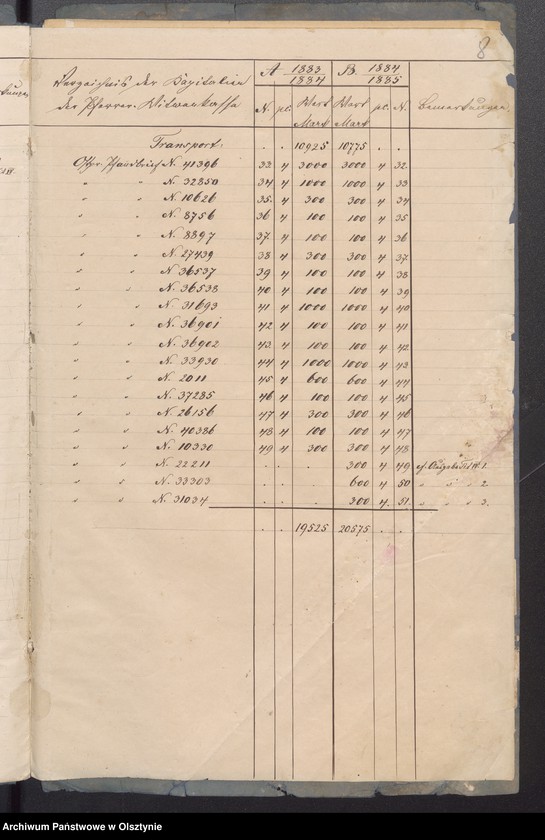 8
Verzeichnis der Kapitalien A 1883/1884 B. 1884/1885
der Pfarrer-Witwenkasse N. pC. Wert Mark Wert Mark pC. N. Bemerkungen
Transport: . . 10925 10775 . .
Ostpr. Pfandbrief N. 41396 33 4 3000 3000 4 32
" " N. 32850 34 4 1000 1000 4 33
" " N. 10626 35. 4 300 300 4 34
" " N. 8756 36 4 100 100 4 35
" " N. 8897 37. 4 100 100 4 36
" " N. 27439 38 4 300 300 4 37.
" " N. 36537 39 4 100 100 4 38
" " N. 36538 40 4 100 100 4 39
" " N. 31693 41 4 1000 1000 4 40
" " N. 36901 42 4 100 100 4 41
" " N. 36902 43 4 100 100 4 42
" " N. 33930 44 4 1000 1000 4 43
" " N. 2011 45 4 600 600 4 44
" " N. 37285 46 4 100 100 4 45
" " N. 26156 47 4 300 300 4 46
" " N. 40386 48 4 100 100 4 47
" " N. 10330 49 4 300 300 4 48
" " N. 22211 . . . 300 4 49 cf. Ausgabe Tit 1.
" " N. 33303 . . . 600 4 50 " " " 2
" " N. 31034 . . . 300 4. 51. " " " 3.
. . 19525 20575 . .
Archiwum Państwowe w Olsztynie